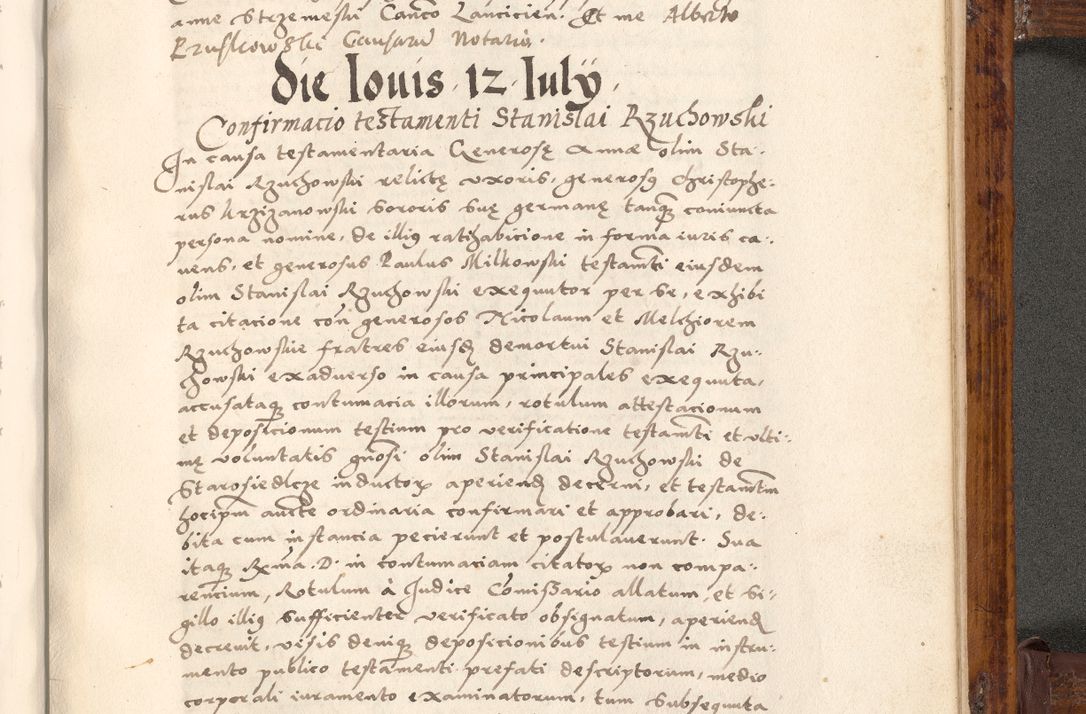 anne Strzemeski Canco Lancicien. Et me Alberto
Pruskowski Causarum Notario.
Die Iouis 12 Iulÿ.
Confirmacio testamenti Stanislai Rzuchowski
In causa testamentaria Generosę Annæ olim Sta-
nislai Rzuchowski relictę vxoris, generosus Christophe-
rus Krzizanowski sororis suę germanę tanquam coniuncta
persona nomine, de illius ratihabicione in forma iuris ca-
uens, et generosus Paulus Milkowski testamti eiusdem
olim Stanislai Rzuchowski exequutor per se, exhibi
ta citacione con generosos Nicolaum et Melchiorem
Rzuchowskie fratres eiusd demortui Stanislai Rzu-
chowski ex aduerso in causa principales exequuta,
accusataque contumacia illorum, rotulum attestacionum
et deposicionum testium pro verificatione testamti et vlti-
mę voluntatis gnosi olim Stanislai Rzuchowski de
Starosiedlcze inductor aperiend decerni, et testamtm
hocipm aucte ordinaria confirmari et approbari, de-
bita cum instancia pecierunt et postulauerunt. Sua
itaque Rma. D. in contumaciam citator non compa-
rencium, Rotulum à Judice Comissario allatum, et si-
gillo illius sufficienter verificato obsignatum, aperiend
decreuit, visis denique deposicionibus testium in instru-
mento publico testamenti prefati descriptorum, medio
corporali iuramento examinatorum, tum subsequuta